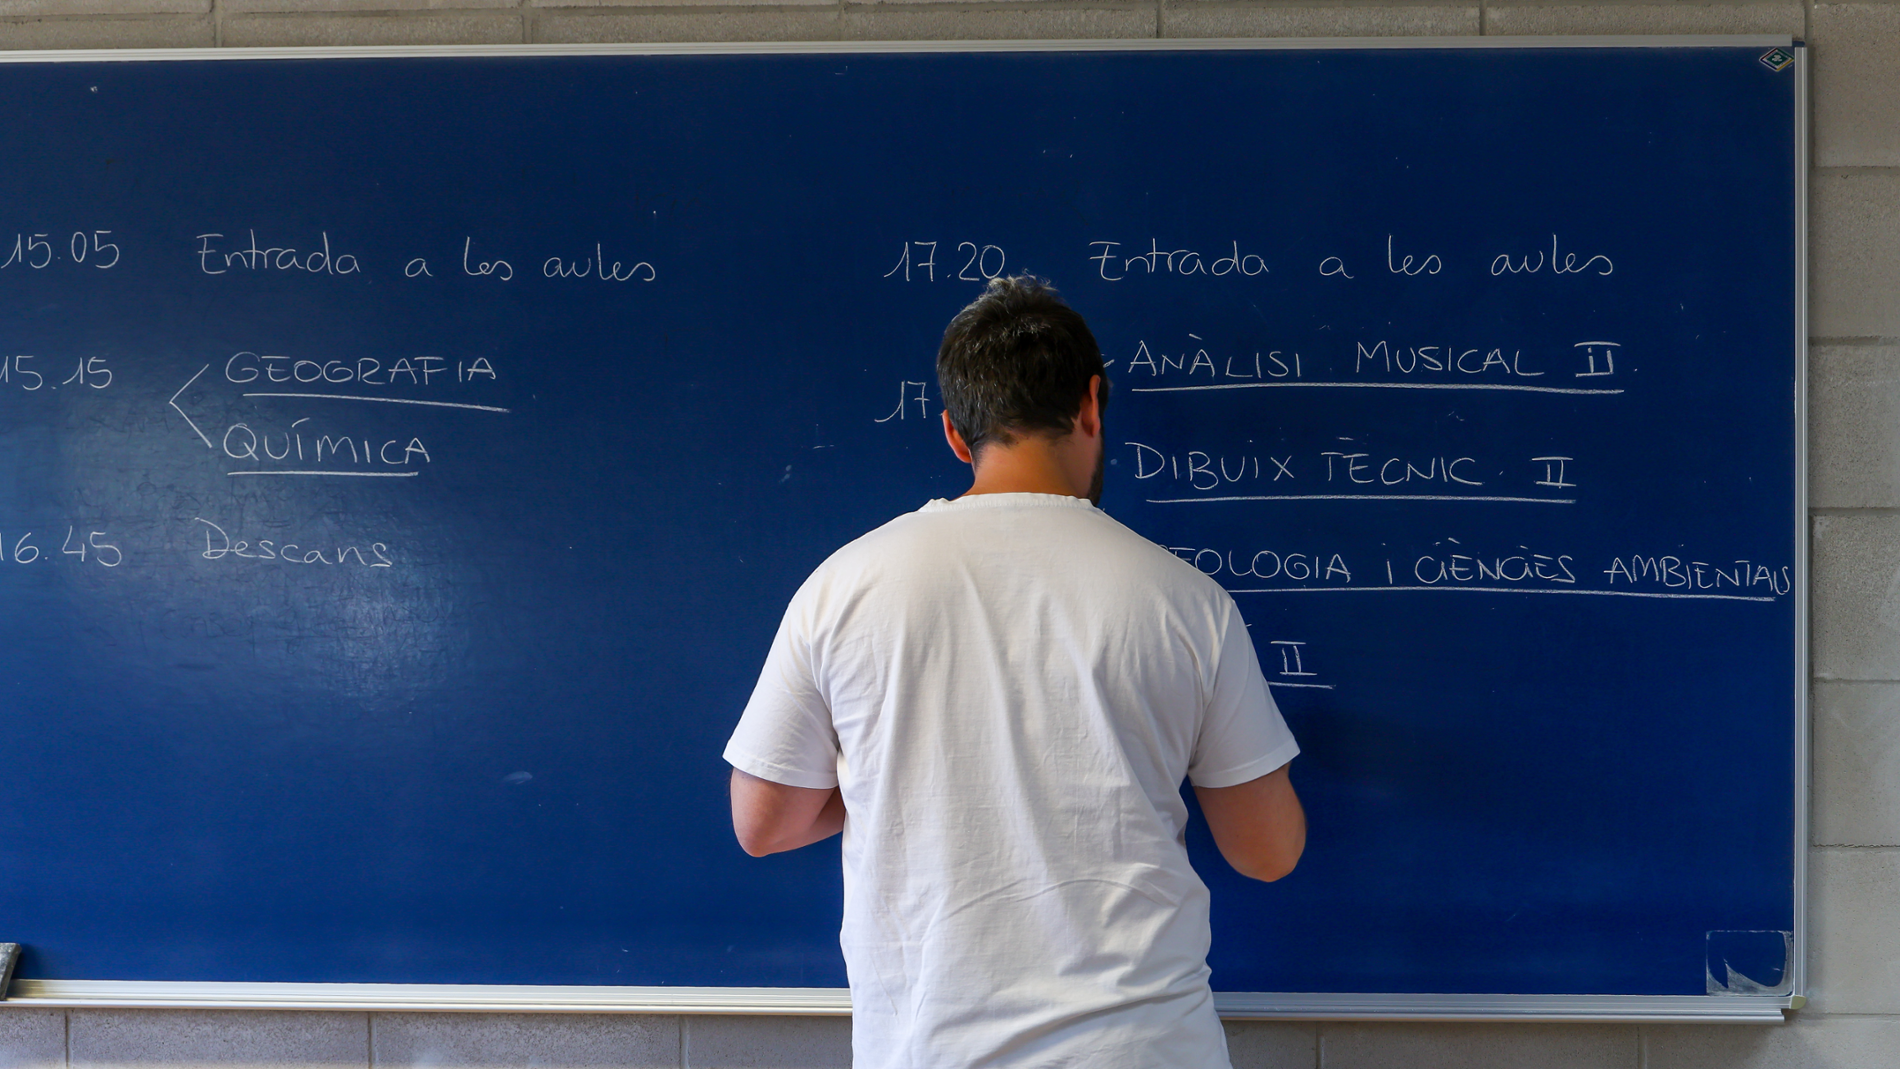 15.05 Entrada a les aules
15.15 GEOGRAFIA
QUÍMICA
16.45 Descans
17.20 Entrada a les aules
17.
ANÀLISI MUSICAL II
DIBUIX TÈCNIC II
i CIÈNCIES AMBIENTALS
II